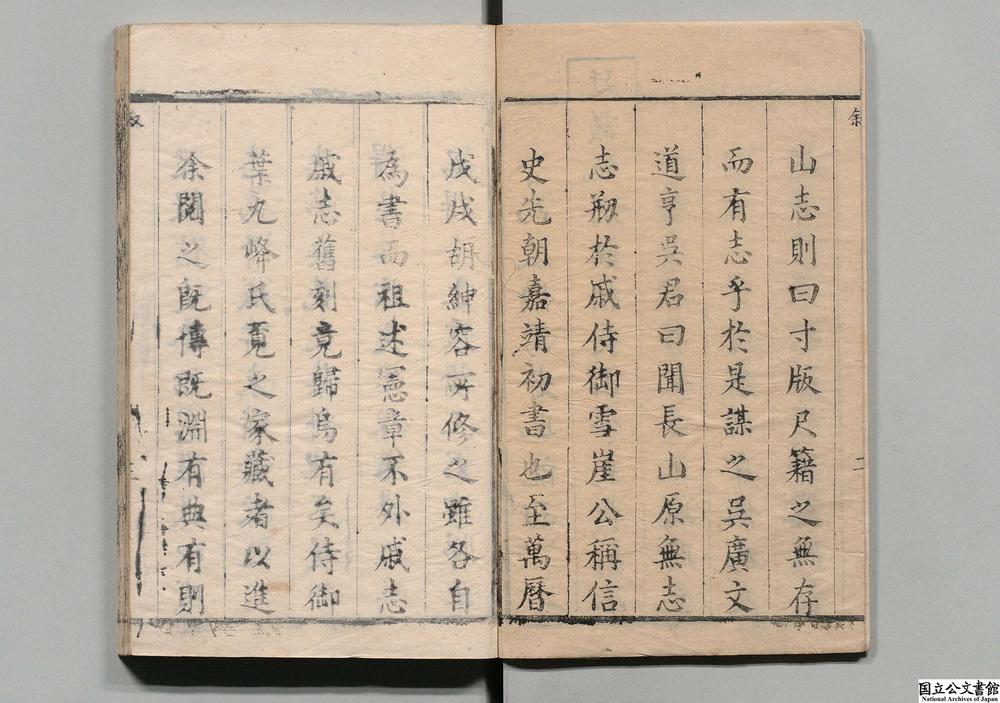 山志則曰寸版尺籍之無存
而有志乎於是謀之吳廣文
道亨吳君曰聞長山原無志
志剏於戚侍御雪崖公稱信
史先朝嘉靖初書也至萬曆
戊戌胡紳容所修之雖各自
為書而祖述憲章不外戚志
戚志舊刻竟歸烏有矣侍御
葉九峰氏覓之家藏者以進
余閱之既博既淵有典有則
敘
二
国立公文書館
National Archives of Japan